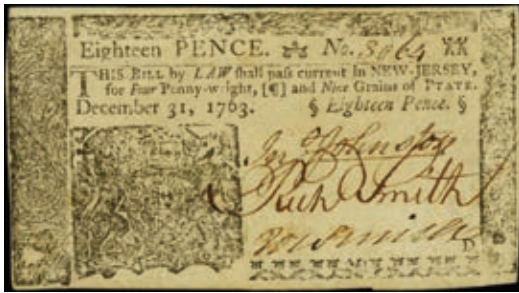 Eighteen PENCE. No. 8964
THIS BILL by LAW shall pass current in NEW-JERSEY,
for Four Penny-weight, [¶] and Nine Grains of PLATE.
December 31, 1763. § Eighteen Pence. §
Johnston
Rich Smith
D